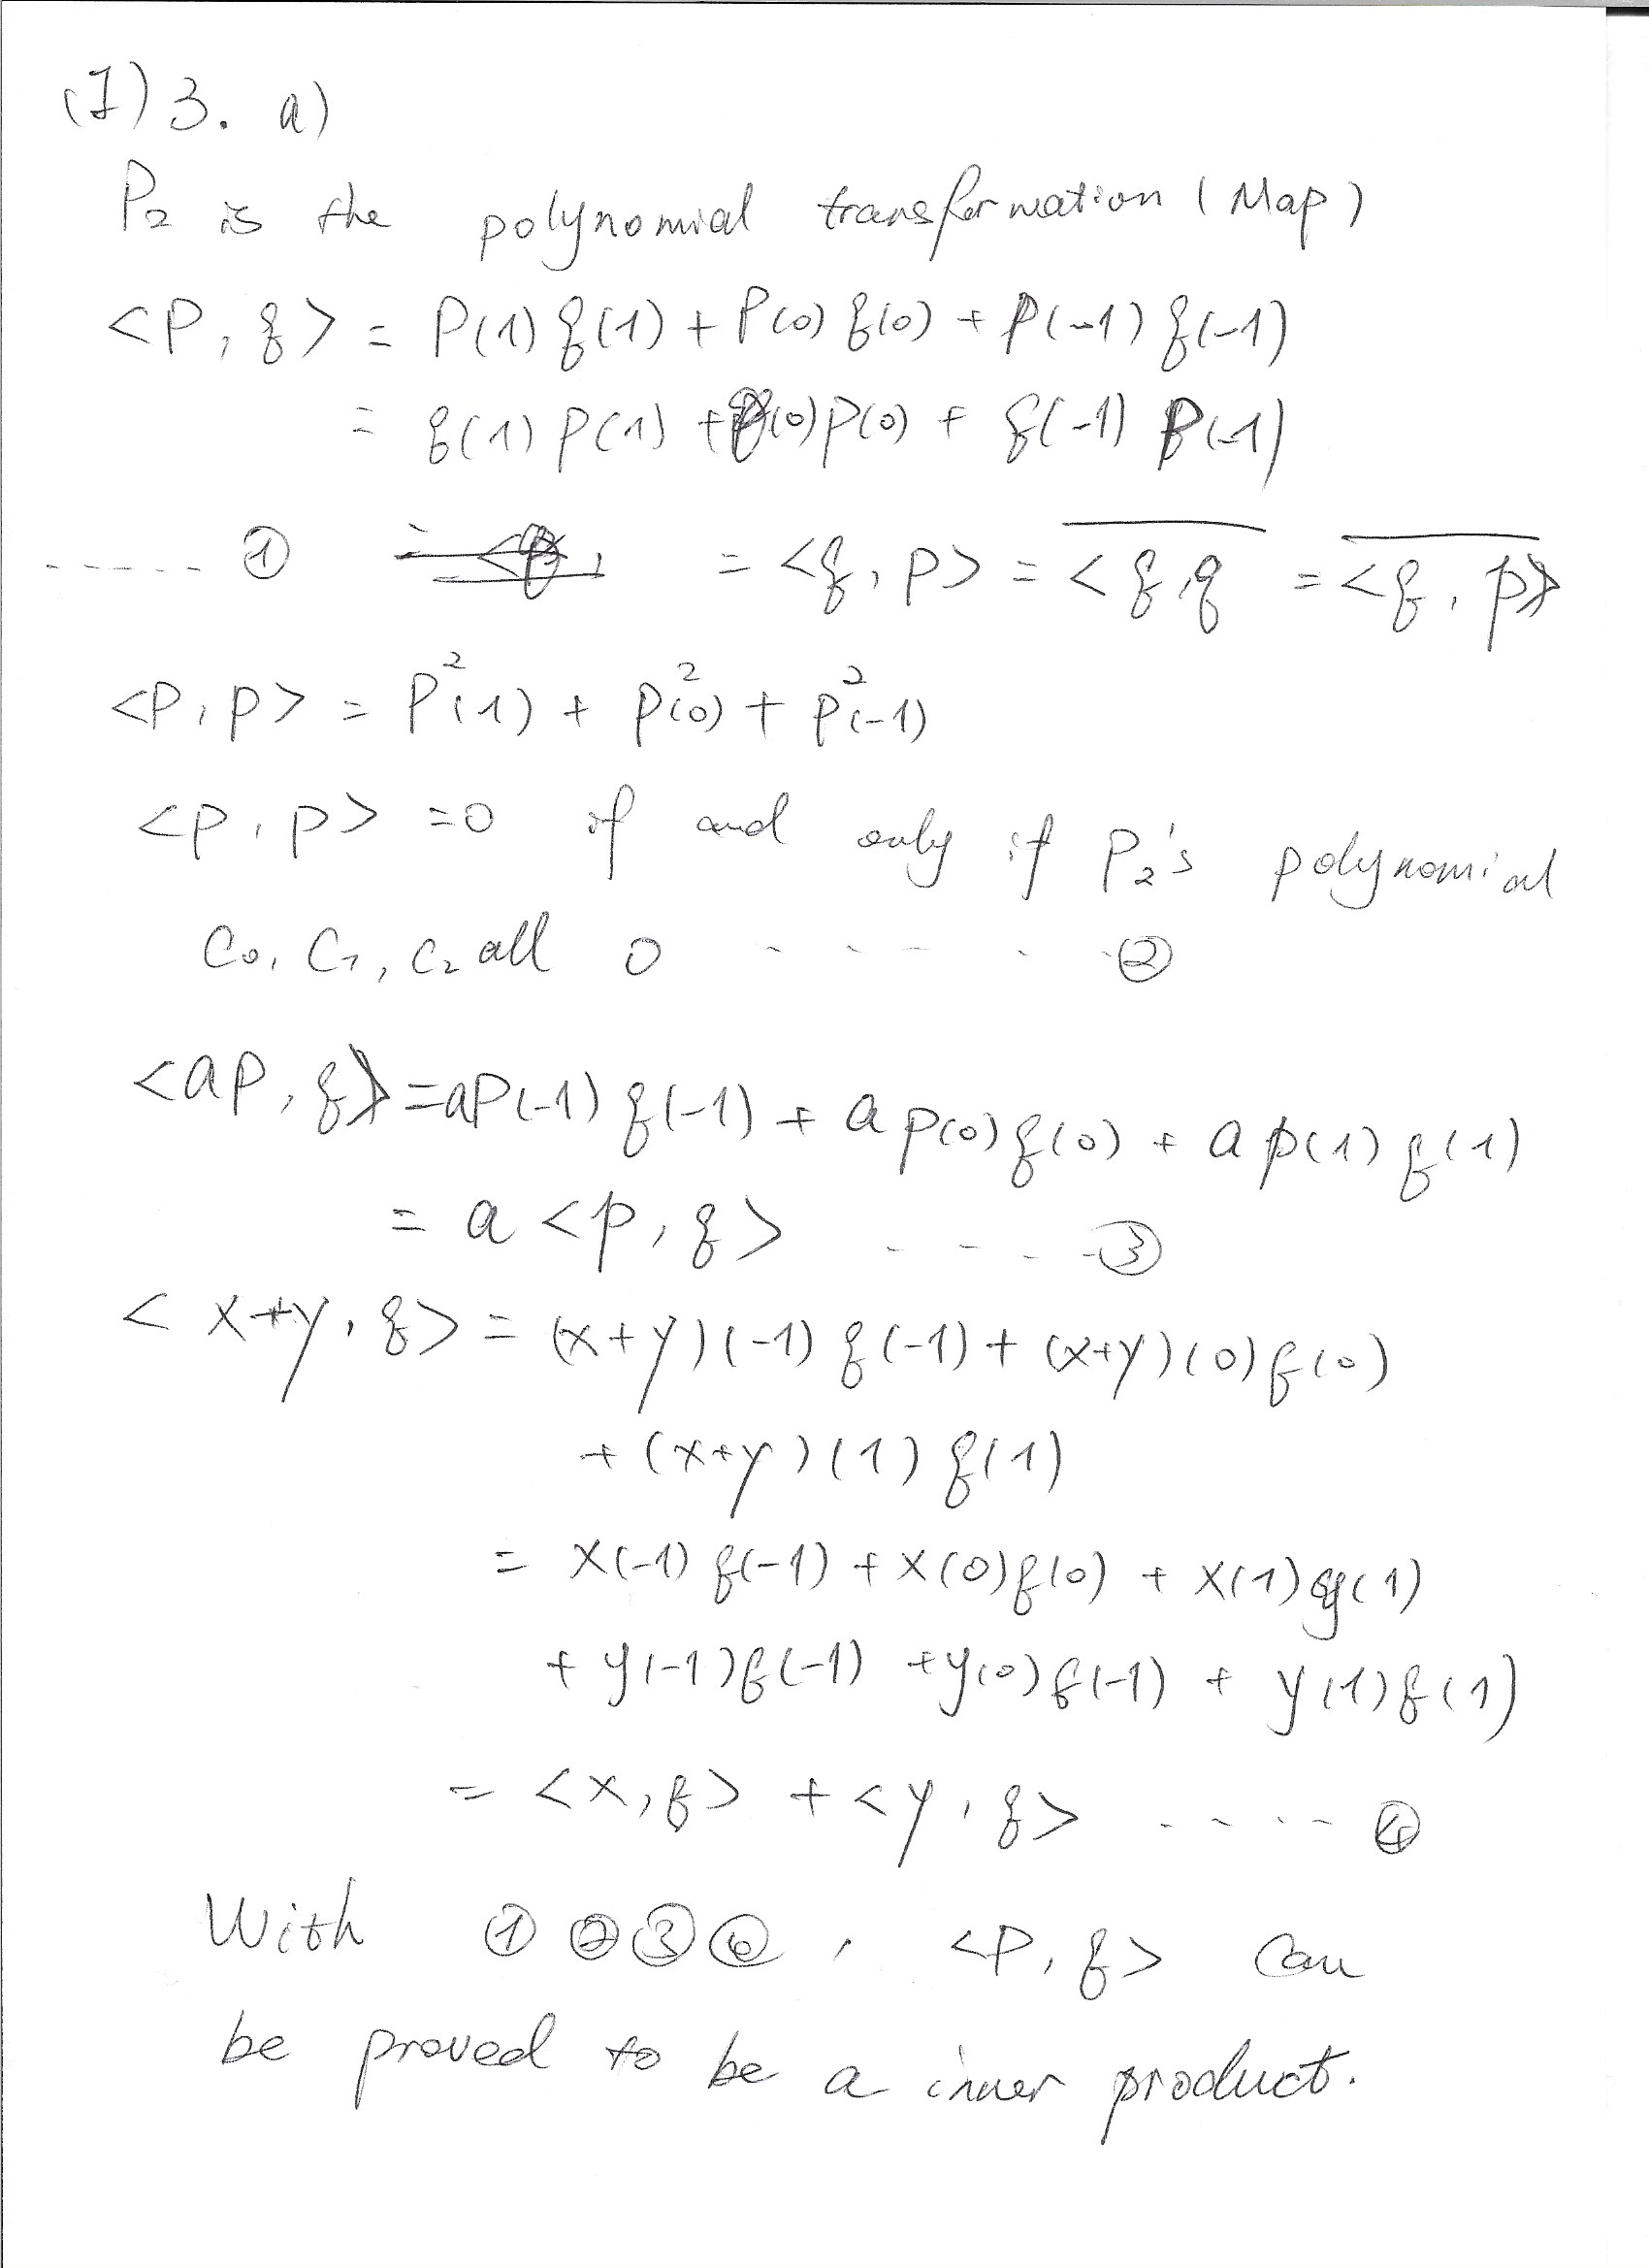 (I) 3. a)
P₂ is the polynomial transformation (Map)
<P, q> = P(1) q(1) + P(0) q(0) + P(-1) q(-1)
= q(1) P(1) + q(0) P(0) + q(-1) P(-1)
..... ① = <q, p> = <q,q = <q, p>
<P, p> = P²(1) + p²(0) + p²(-1)
<p, p> =0 if and only if P₂'s polynomial
C₀, C₁, C₂ all 0 ..... ②
<ap, q> =aP(-1) q(-1) + a p(0) q(0) + a p(1) q(1)
= a <p, q> ..... ③
< x+y, q> = (x+y)(-1) q(-1) + (x+y)(0) q(0)
+ (x+y)(1) q(1)
= x(-1) q(-1) + x(0) q(0) + x(1) q(1)
+ y(-1) q(-1) + y(0) q(-1) + y(1) q(1)
= <x, q> + <y, q> ..... ④
With ① ② ③ ④ , <P, q> can
be proved to be a inner product.